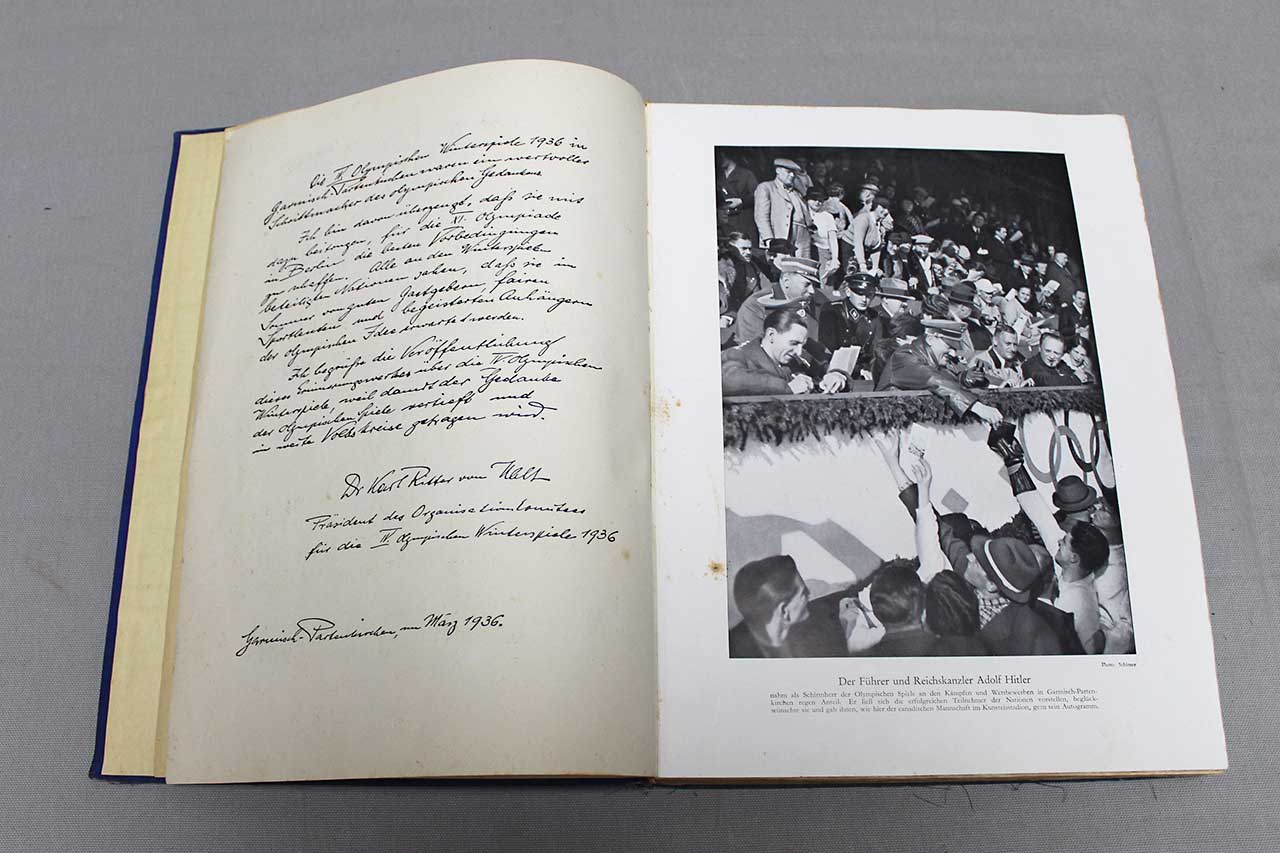 Die IV. Olympischen Winterspiele 1936 in
Garmisch-Partenkirchen waren ein wertvoller
Schrittmacher des olympischen Gedankens.
Ich bin davon überzeugt, daß sie mit
dazu beitragen, für die Olympiade
in Berlin die besten Vorbedingungen
zu schaffen. Alle an den Winterspielen
beteiligten Nationen sahen, daß sie im
Sommer von guten Gastgebern, fairen
Sportleuten und begeisterten Anhängern
der olympischen Idee erwartet werden.
Ich begrüße die Veröffentlichung
dieses Erinnerungswerkes über die IV. Olympischen
Winterspiele, weil damit der Gedanke
der Olympischen Spiele vertieft und
in weite Volkskreise getragen wird.
Dr Karl Ritter von Halt
Präsident des Organisationskomitees
für die IV. Olympischen Winterspiele 1936
Garmisch-Partenkirchen, im März 1936.
Photo: Schirner
Der Führer und Reichskanzler Adolf Hitler
nahm als Schirmherr der Olympischen Spiele an den Kämpfen und Wettbewerben in Garmisch-Parten-
kirchen regen Anteil. Er ließ sich die erfolgreichen Teilnehmer der Nationen vorstellen, beglück-
wünschte sie und gab ihnen, wie hier der canadischen Mannschaft im Kunsteisstadion, gern sein Autogramm.